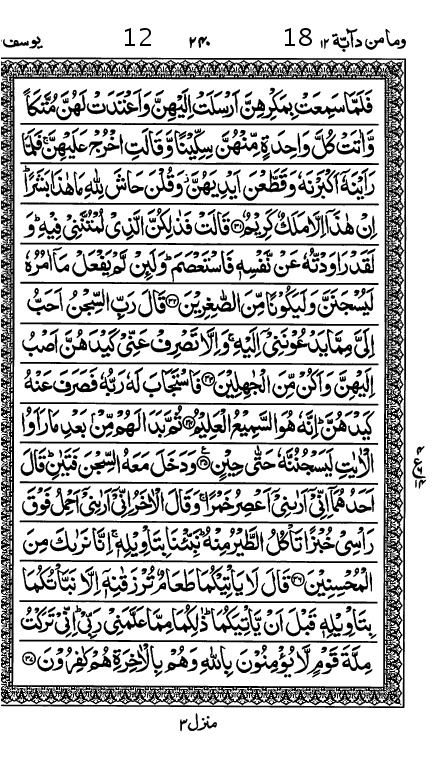 وما من دآبّة ١٢ 18 ٢٤٠ 12 يوسف
فَلَمَّا سَمِعَتْ بِمَكْرِهِنَّ اَرْسَلَتْ اِلَيْهِنَّ وَاَعْتَدَتْ لَهُنَّ مُتَّكَاً
وَّاٰتَتْ كُلَّ وَاحِدَةٍ مِّنْهُنَّ سِكِّيْنًا وَّقَالَتِ اخْرُجْ عَلَيْهِنَّ ۚ فَلَمَّا
رَاَيْنَهٗٓ اَكْبَرْنَهٗ وَقَطَّعْنَ اَيْدِيَهُنَّ ۫ وَقُلْنَ حَاشَ لِلّٰهِ مَا هٰذَا بَشَرًا ؕ
اِنْ هٰذَآ اِلَّا مَلَكٌ كَرِيْمٌ ﴿۳۱﴾ قَالَتْ فَذٰلِكُنَّ الَّذِيْ لُمْتُنَّنِيْ فِيْهِ ؕ وَ
لَقَدْ رَاوَدْتُّهٗ عَنْ نَّفْسِهٖ فَاسْتَعْصَمَ ؕ وَلَئِنْ لَّمْ يَفْعَلْ مَآ اٰمُرُهٗ
لَيُسْجَنَنَّ وَلَيَكُوْنًا مِّنَ الصّٰغِرِيْنَ ﴿۳۲﴾ قَالَ رَبِّ السِّجْنُ اَحَبُّ
اِلَيَّ مِمَّا يَدْعُوْنَنِيْٓ اِلَيْهِ ۚ وَاِلَّا تَصْرِفْ عَنِّيْ كَيْدَهُنَّ اَصْبُ
اِلَيْهِنَّ وَاَكُنْ مِّنَ الْجٰهِلِيْنَ ﴿۳۳﴾ فَاسْتَجَابَ لَهٗ رَبُّهٗ فَصَرَفَ عَنْهُ
كَيْدَهُنَّ ؕ اِنَّهٗ هُوَ السَّمِيْعُ الْعَلِيْمُ ﴿۳۴﴾ ثُمَّ بَدَا لَهُمْ مِّنْۢ بَعْدِ مَا رَاَوُا
الْاٰيٰتِ لَيَسْجُنُنَّهٗ حَتّٰى حِيْنٍ ﴿۳۵﴾ وَدَخَلَ مَعَهُ السِّجْنَ فَتَيٰنِ ؕ قَالَ
اَحَدُهُمَآ اِنِّيْٓ اَرٰىنِيْٓ اَعْصِرُ خَمْرًا ۚ وَقَالَ الْاٰخَرُ اِنِّيْٓ اَرٰىنِيْٓ اَحْمِلُ فَوْقَ
رَاْسِيْ خُبْزًا تَاْكُلُ الطَّيْرُ مِنْهُ ؕ نَبِّئْنَا بِتَاْوِيْلِهٖ ۚ اِنَّا نَرٰىكَ مِنَ
الْمُحْسِنِيْنَ ﴿۳۶﴾ قَالَ لَا يَاْتِيْكُمَا طَعَامٌ تُرْزَقٰنِهٖٓ اِلَّا نَبَّاْتُكُمَا
بِتَاْوِيْلِهٖ قَبْلَ اَنْ يَّاْتِيَكُمَا ؕ ذٰلِكُمَا مِمَّا عَلَّمَنِيْ رَبِّيْ ؕ اِنِّيْ تَرَكْتُ
مِلَّةَ قَوْمٍ لَّا يُؤْمِنُوْنَ بِاللّٰهِ وَهُمْ بِالْاٰخِرَةِ هُمْ كٰفِرُوْنَ ﴿۳۷﴾
٤
ع
١٤
منزل ٣